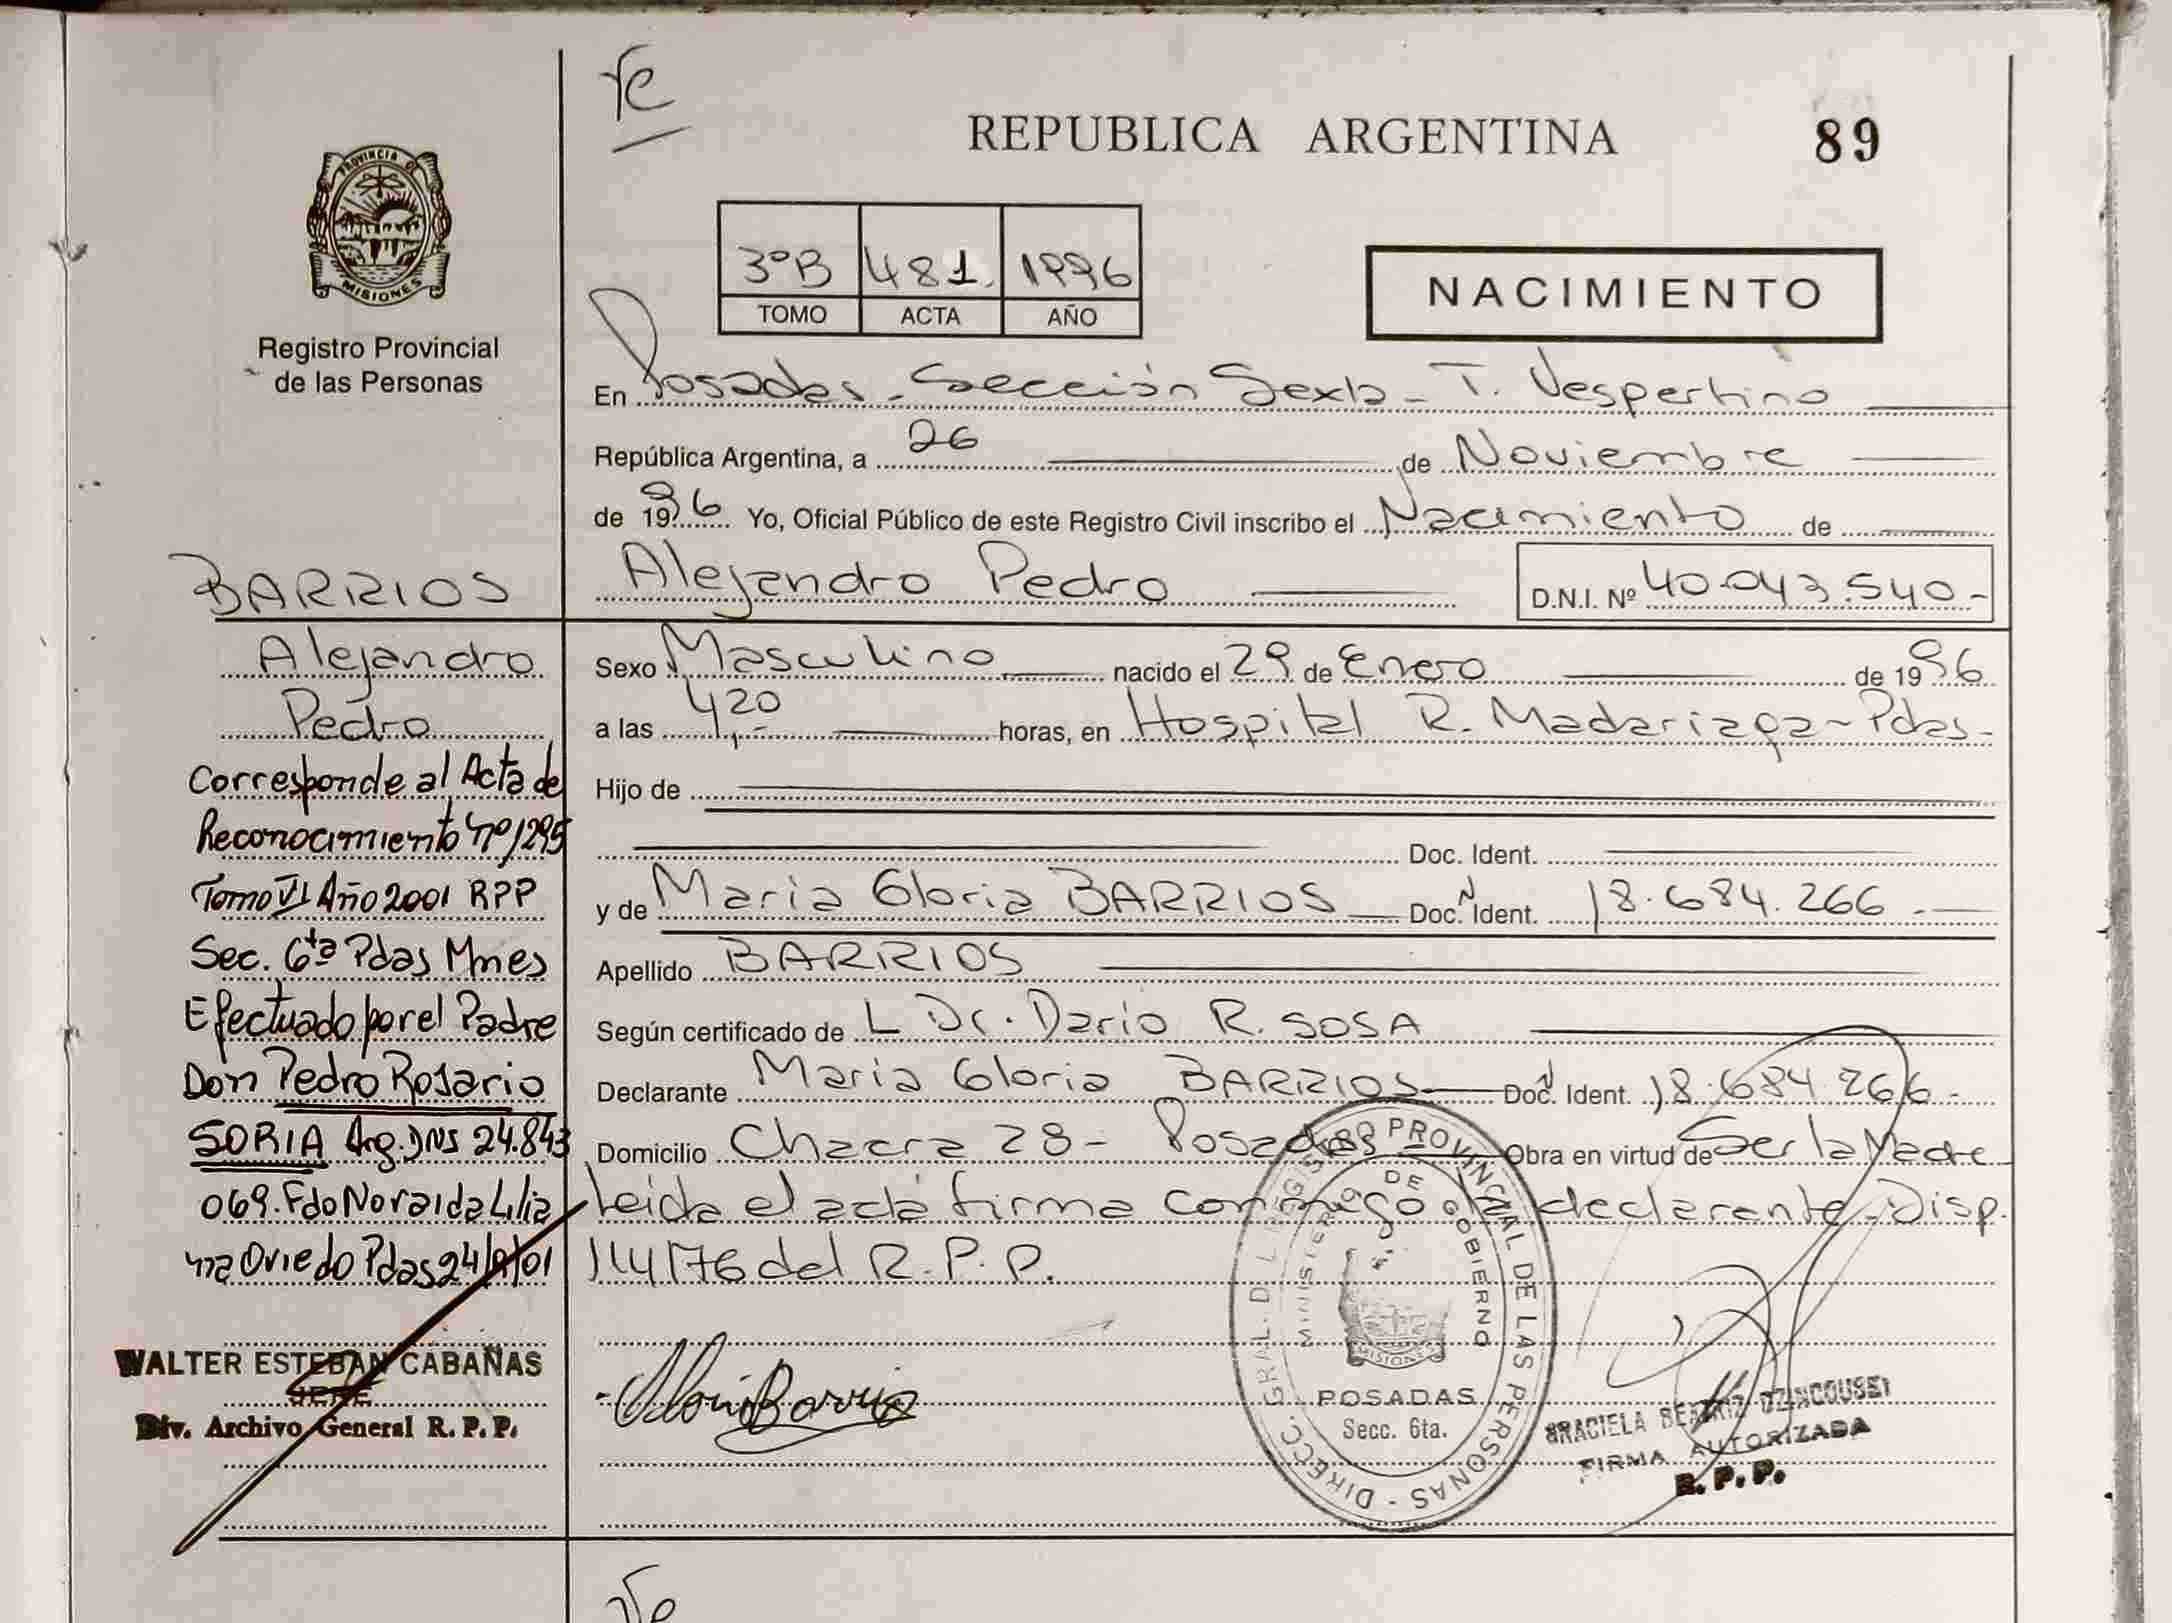 Te
REPUBLICA ARGENTINA
89
PROVINCIA DE
MISIONES
Registro Provincial
de las Personas
3ºB 481 1996
TOMO ACTA AÑO
NACIMIENTO
En Posadas - Sección Sexta - T. Vespertino
República Argentina, a 26 de Noviembre
de 1996 Yo, Oficial Público de este Registro Civil inscribo el Nacimiento de
Alejandro Pedro
D.N.I. Nº 40.043.540-
Sexo Masculino nacido el 29 de Enero de 1996
a las 4,20 horas, en Hospital R. Madariaga - Pdas-
Hijo de
Doc. Ident.
y de Maria Gloria BARRIOS Doc. N Ident. 18.684.266.-
Apellido BARRIOS
Según certificado de L Dr. Dario R. SOSA
Declarante Maria Gloria BARRIOS Doc. N Ident. 18.684.266-
Domicilio Chacra 28 - Posadas - Obra en virtud de Ser la Madre
Leida el acta firma conmigo la declarante - Disp.
14/76 del R.P.P.
BARRIOS
Alejandro
Pedro
Corresponde al Acta de
Reconocimiento Nº 1295
Tomo VI Año 2001 RPP
Sec. 6ta Pdas Mnes
Efectuado por el Padre
Don Pedro Rosario
SORIA Arg. DNI 24.843
069. Fdo Noraida Lilia
na Oviedo Pdas 24/9/01
WALTER ESTEBAN CABAÑAS
JEFE
Div. Archivo General R.P.P.
Gloria Barrios
DIRECC. GRAL. DEL REGISTRO PROVINCIAL DE LAS PERSONAS -
MINISTERIO DE GOBIERNO
MISIONES
POSADAS
Secc. 6ta.
GRACIELA BEATRIZ
FIRMA AUTORIZADA
R.P.P.
Te